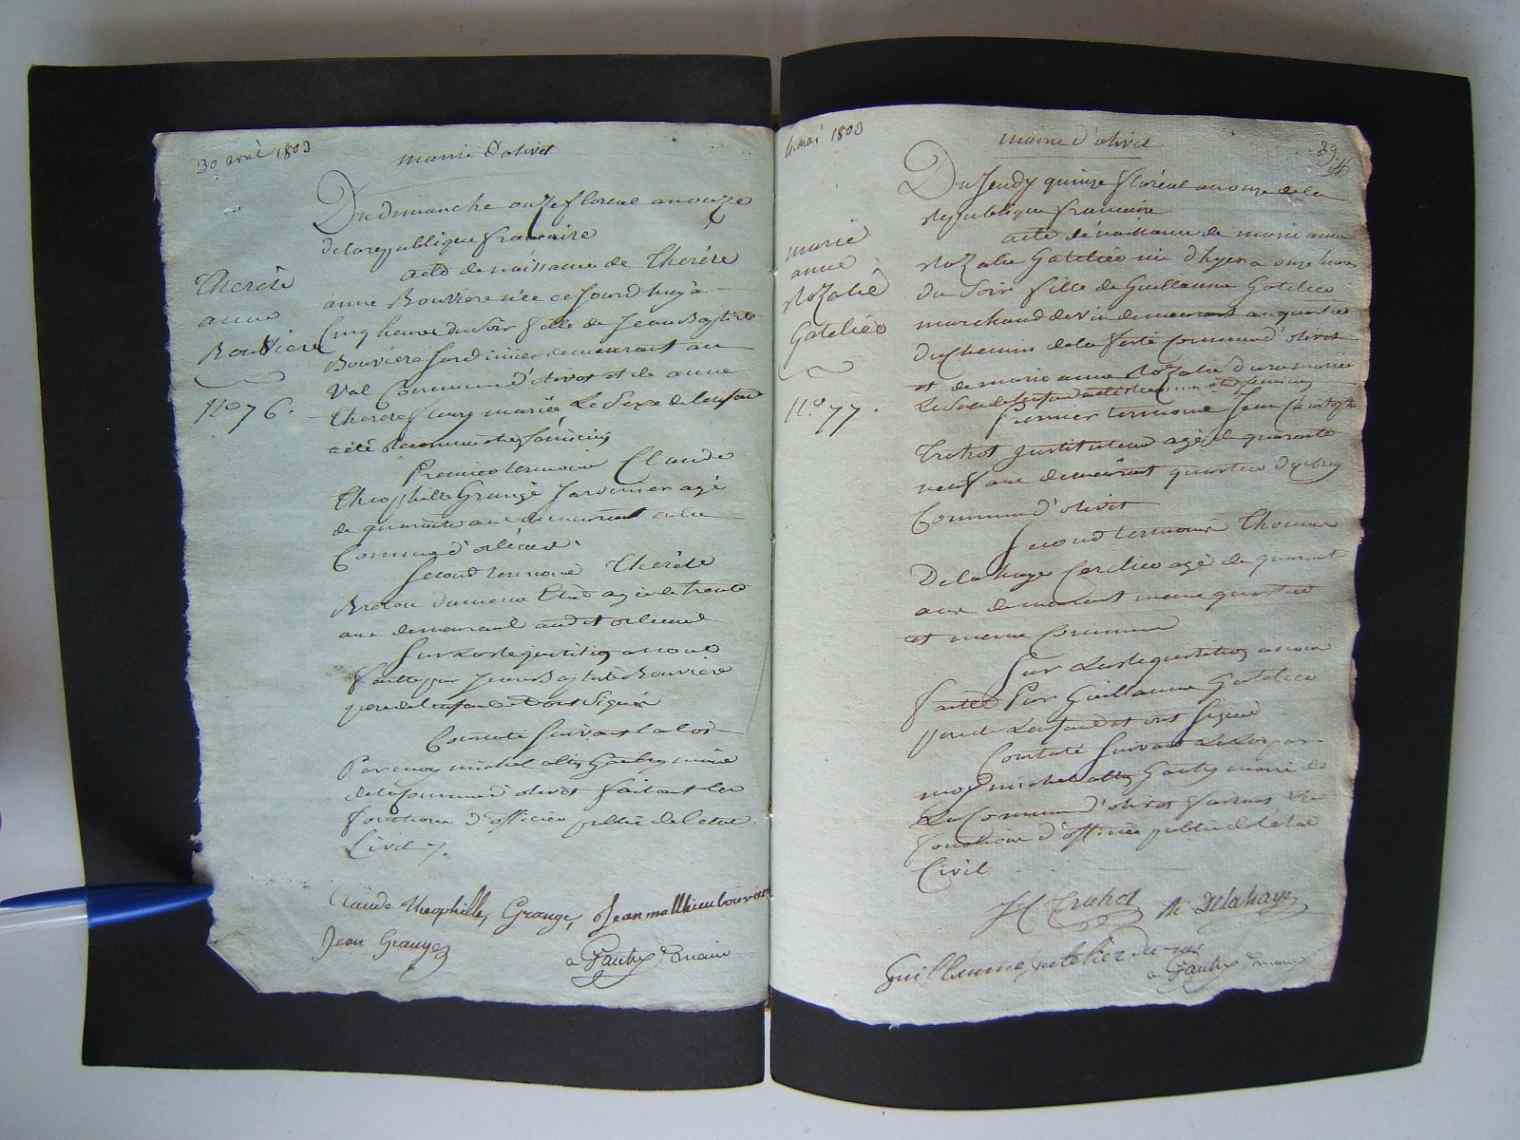 30 avril 1803
mairie d'olivet
Du dimanche onze floreal an onze
de la republique francaise
acte de naissance de Therèse
anne Bouviere née ce jourd huy à
Cinq heures du soir fille de Jean Baptiste
Bouviere jardinier demeurant au
Val Commune d'olivet et de anne
therese fleury mariée Le Sexe de lenfant
a été reconnu être féminin
Therèse
anne
Bouviere
No 76.
Premier temoin Claude
Theophille Grangé Jardinier agé
de quarante ans demeurant
Commune d'orléans
Second temoin Therèse
agée de trente
ans demeurant audit orleans
Sur La requisition a nous
faitte par Jean Baptiste Bouviere
pere de lenfant et ont Signé
Constaté Suivant la loi
Par moy michel alexis Gautry maire
de la Commune d'olivet faisant les
fonctions d'officier public de letat
Civil
Claude theophille Grange Jean matthieu bouviere
Jean Grange
a Gautry maire
6 mai 1803
mairie d'olivet
39
Du Jeudy quinze floréal an onze de la
Republique francaise
acte de naissance de marie anne
Rozalie Gatelico née d'hyer a onze heures
du Soir fille de Guillaume Gatelico
marchand de vin demeurant au quartier
du Chemin de la ferté Commune d'olivet
et de marie anne Rozalie mariée
Le Sexe de lenfant a été reconnu etre feminin
marie
anne
Rozalie
Gatelico
No 77.
Premier temoin Jean
Instituteur agé de quarante
neuf ans demeurant quartier
Commune d'olivet
Second temoin Thomas
Delahaye agé de quarante
ans demeurant meme quartier
et meme Commune
Sur La requisition a nous
faitte Par Guillaume Gatelico
pere de Lenfant et ont Signé
Constaté Suivant La Loy par
moy michel alexis Gautry maire de
La Commune d'olivet faisant les
fonctions d'officier public de letat
Civil
Delahaye
Guillaume
a Gautry maire